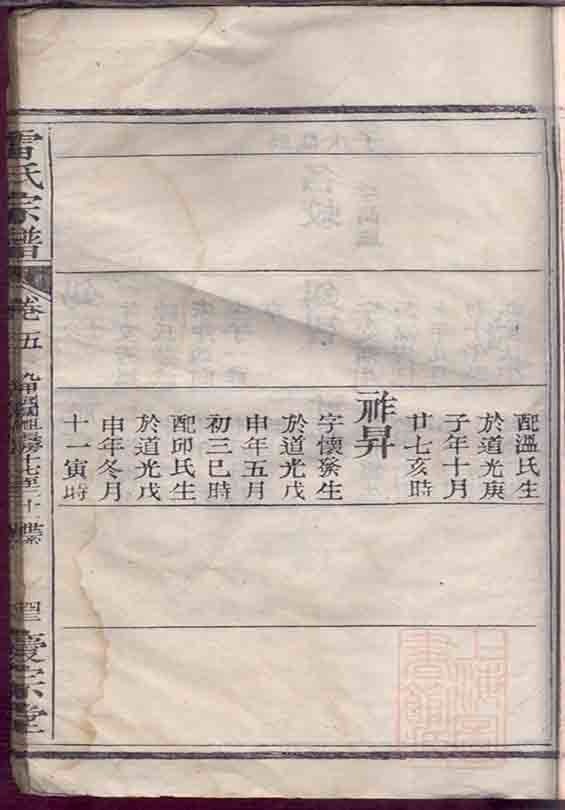 配溫氏生
於道光庚
子年十月
廿七亥時
祚昇
字懷紫生
於道光戊
申年五月
初三巳時
配邱氏生
於道光戊
申年冬月
十一寅時
雷氏宗譜
卷五
慶宗堂
上海圖書館藏